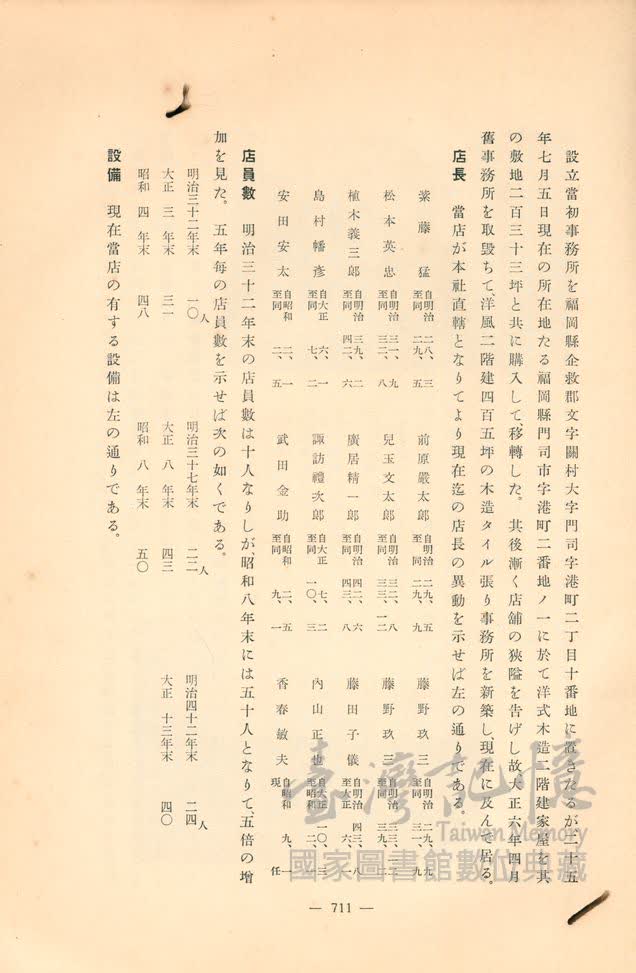 設立當初事務所を福岡縣企救郡文字關村大字門司字港町二丁目十番地に置きたるが、二十五
年七月五日現在の所在地たる福岡縣門司市字港町二番地ノ一に於て洋式木造二階建家屋を其
の敷地二百三十三坪と共に購入して、移轉した。其後漸く店舗の狹隘を告げし故、大正六年四月
舊事務所を取毀ちて、洋風二階建四百五坪の木造タイル張り事務所を新築し、現在に反んで居る。
店長　當店が本社直轄となりてより現在迄の店長の異動を示せば左の通りである。
紫藤猛　自明治二八、三　至同二九、五　前原嚴太郎　自明治二九、五　至同二九、九　藤野玖三　自明治二九、九　至同三一、九
松本英忠　自明治三一、九　至同三二、八　兒玉文太郎　自明治三二、八　至同三三、一二　藤野玖三　自明治三三、一二　至同三九、二
植木義三郎　自明治三九、二　至同四二、六　廣居精一郎　自明治四二、六　至同四三、八　藤田子儀　自明治四三、八　至大正六、一
島村幡彦　自大正六、一　至同七、二　諏訪禮次郎　自大正七、二　至同一〇、三　內山正也　自大正一〇、三　至昭和二、一
安田安太　自昭和二、一　至同二、五　武田金助　自昭和二、五　至同九、一　香春敏夫　自昭和九、一　現任
店員數　明治三十二年末の店員數は十人なりしが、昭和八年末には五十人となりて、五倍の增
加を見た。五年每の店員數を示せば次の如くである。
明治三十二年末　一〇人　明治三十七年末　二二人　明治四十二年末　二四人
大正三年末　三一　大正八年末　四三　大正十三年末　四〇
昭和四年末　四八　昭和八年末　五〇
設備　現在當店の有する設備は左の通りである。
— 711 —
臺灣記憶
Taiwan Memory
國家圖書館數位典藏